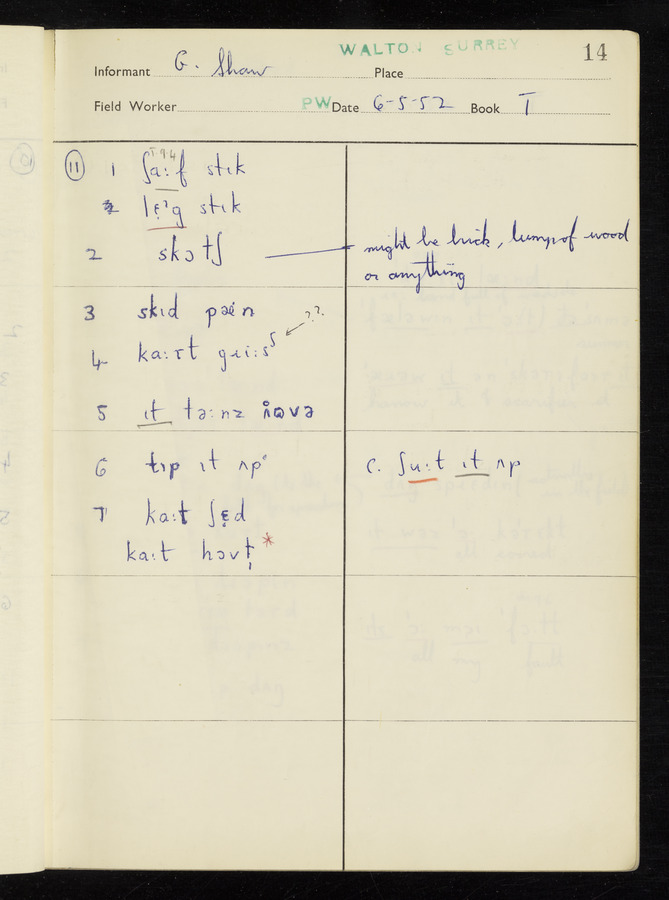 WALTON SURREY 14
Informant G. Shaw Place
Field Worker PW Date 6-5-52 Book I
⑪ 1 ʃa:f stɪk
lɛ̣ᵊg stɪk
2 skɔtʃ might be brick, lump of wood
or anything
3 skɪd pæn
4 ??
5 ɪt tə:nz
6 tɪp ɪt ʌp C. ʃu:t ɪt ʌp
7 ka:t ʃɛ̣d
ka:t *